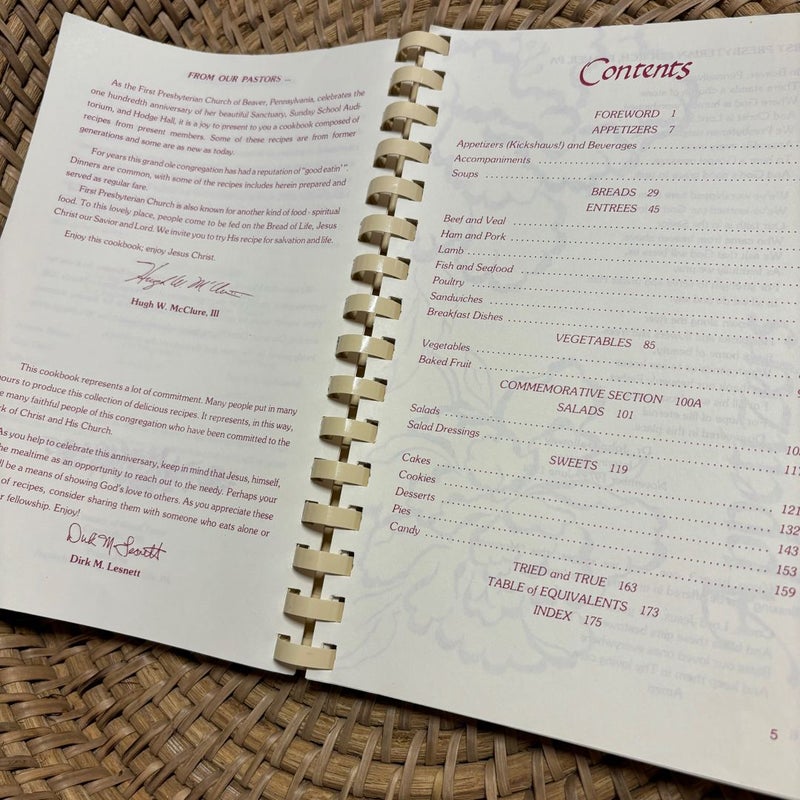 FROM OUR PASTORS —
As the First Presbyterian Church of Beaver, Pennsylvania, celebrates the
one hundredth anniversary of her beautiful Sanctuary, Sunday School Audi-
torium, and Hodge Hall, it is a joy to present to you a cookbook composed of
recipes from present members. Some of these recipes are from former
generations and some are as new as today.
For years this grand ole congregation has had a reputation of "good eatin'".
Dinners are common, with some of the recipes includes herein prepared and
served as regular fare.
First Presbyterian Church is also known for another kind of food - spiritual
food. To this lovely place, people come to be fed on the Bread of Life, Jesus
Christ our Savior and Lord. We invite you to try His recipe for salvation and life.
Enjoy this cookbook; enjoy Jesus Christ.
Hugh W. McClure
Hugh W. McClure, III
This cookbook represents a lot of commitment. Many people put in many
hours to produce this collection of delicious recipes. It represents, in this way,
many faithful people of this congregation who have been committed to the
of Christ and His Church.
As you help to celebrate this anniversary, keep in mind that Jesus, himself,
the mealtime as an opportunity to reach out to the needy. Perhaps your
be a means of showing God's love to others. As you appreciate these
of recipes, consider sharing them with someone who eats alone or
fellowship. Enjoy!
Dirk M. Lesnett
Dirk M. Lesnett
Contents
FOREWORD 1
APPETIZERS 7
Appetizers (Kickshaws!) and Beverages
Accompaniments
Soups
BREADS 29
ENTREES 45
Beef and Veal
Ham and Pork
Lamb
Fish and Seafood
Poultry
Sandwiches
Breakfast Dishes
VEGETABLES 85
Vegetables
Baked Fruit
COMMEMORATIVE SECTION 100A
SALADS 101
Salads
Salad Dressings
SWEETS 119
Cakes 121
Cookies 132
Desserts 143
Pies 153
Candy 159
TRIED and TRUE 163
TABLE of EQUIVALENTS 173
INDEX 175
5